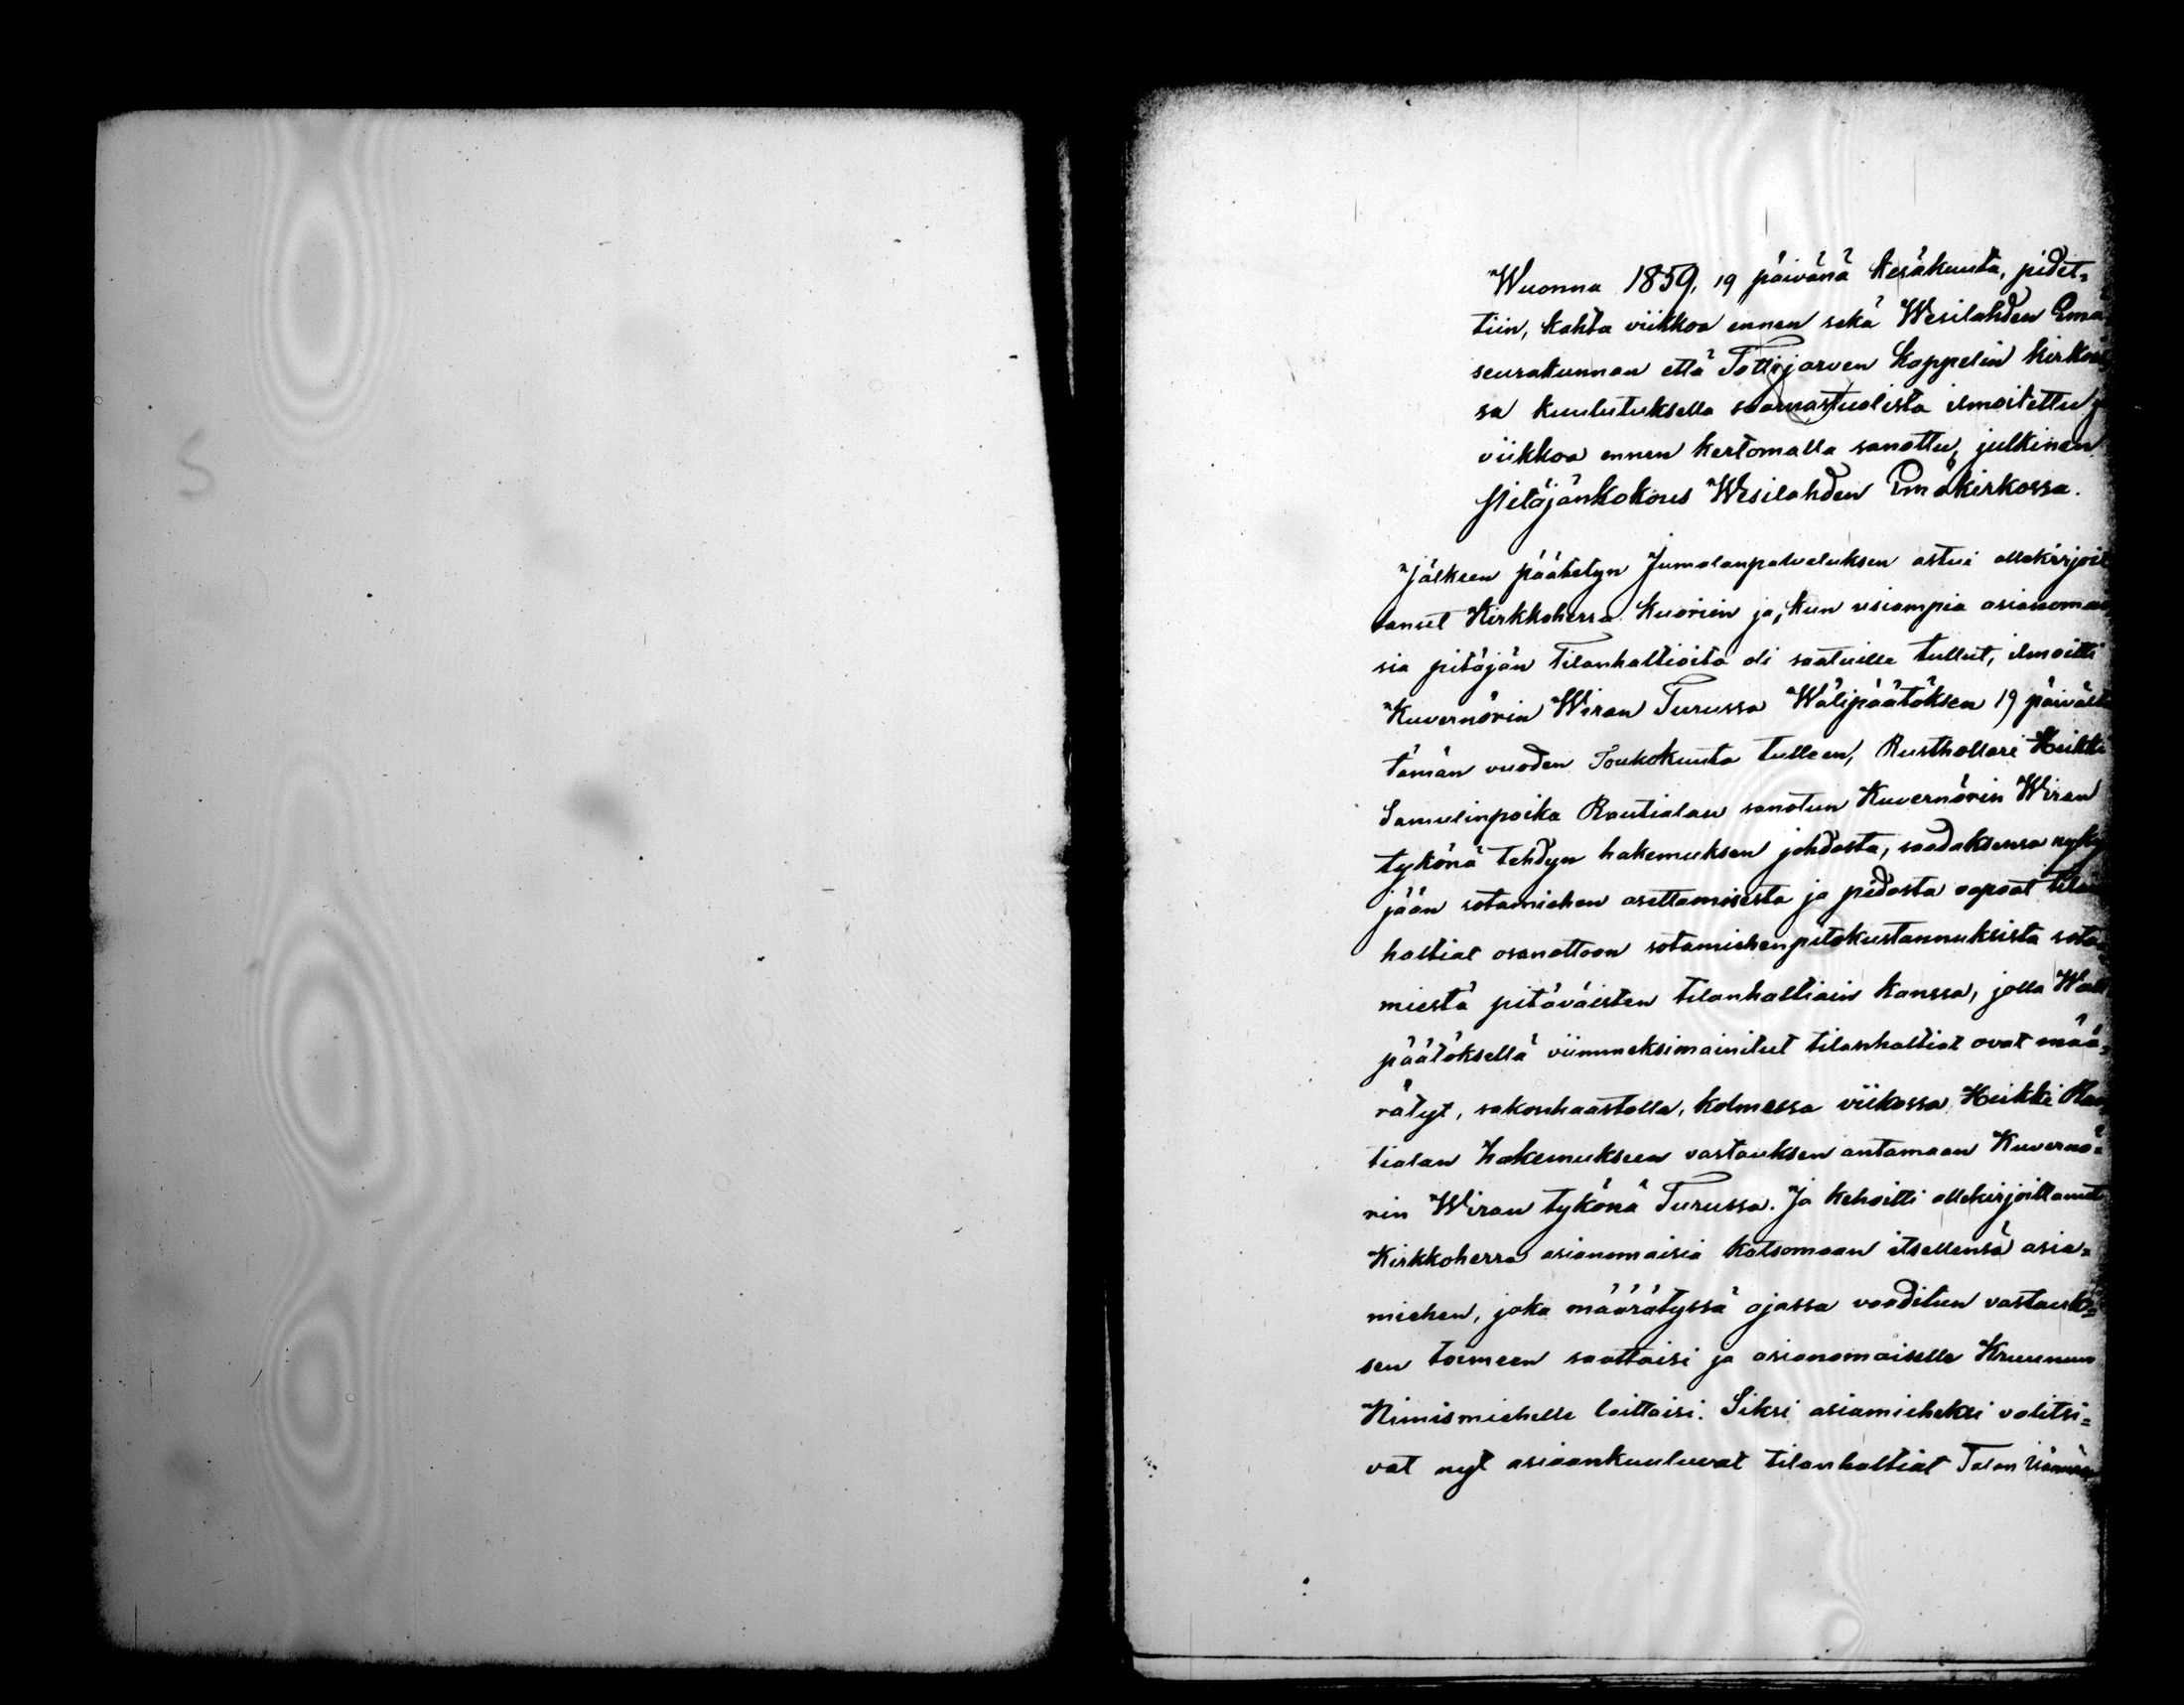 Wuonna 1859, 19 päivänä Kesäkuuta, pidet=
tiin, kahta viikkoa ennen sekä Wesilahden Emä
seurakunnan että Tottijärven kappelin kirkois
sa kuulutuksella saarnastuolista ilmoitettu ja
viikkoa ennen kertomalla sanottu, julkinen
Pitäjänkokous Wesilahden Emäkirkossa.
Jälkeen päätetyn Jumalanpalveluksen astui allekirjoit
tanut Kirkkoherra Kuoriin ja, kun usiampia asianomai
sia pitäjän Tilanhaltioita oli saatuille tullut, ilmoitti
Kuvernörin Wiran Turussa Wälipäätöksen 19 päivält
tämän vuoden Toukokuuta tulleen, Rusthollari Heikki
Samulinpoika Rautialan sanotun Kuvernörin Wiran
tykönä tehdyn hakemuksen johdosta, saadaksensa nyky
jään sotamiehen asettamisesta ja pidosta vapaat tilan
haltiat osanottoon sotamiehenpitokustannuksista sota=
miestä pitäväisten tilanhaltiain kanssa, jolla Wäli
päätöksellä viimmeksimainitut tilanhaltiat ovat mää=
rätyt, sakonhaastolla, kolmessa viikossa Heikki Rau
tialan hakemukseen vastauksen antamaan Kuvernö=
rin Wiran tykönä Turussa. Ja kehoitti allekirjoittanut
Kirkkoherra asianomaisia katsomaan itsellensä asia=
miehen, joka määrätyssä ajassa vaaditun vastauk=
sen toimeen saattaisi ja asianomaiselle Kruunun
Nimismiehelle laittaisi. Siksi asiamieheksi valitsi=
vat nyt asiaankuuluvat tilanhaltiat Talon